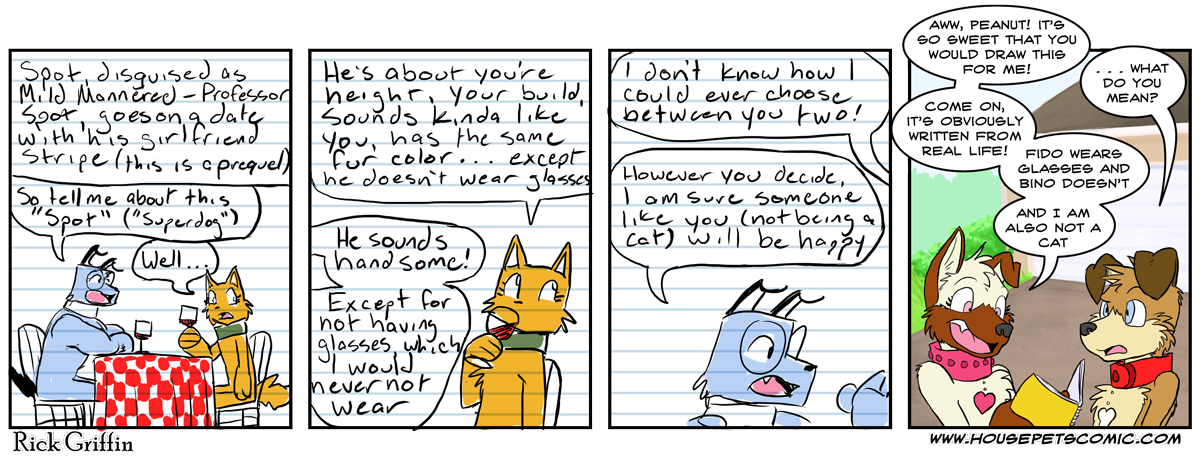 Spot, disguised as
Mild Mannered-Professor
Spot, goes on a date
with his girlfriend
Stripe (this is a prequel)
So tell me about this
"Spot" ("Superdog")
Well...
He's about you're
height, your build,
sounds kinda like
you, has the same
fur color... except
he doesn't wear glasses
He sounds
handsome!
Except for
not having
glasses, which
I would
never not
wear
I don't know how I
could ever choose
between you two!
However you decide,
I am sure someone
like you (not being a
cat) will be happy
AWW, PEANUT! IT'S
SO SWEET THAT YOU
WOULD DRAW THIS
FOR ME!
. . . . WHAT
DO YOU
MEAN?
COME ON,
IT'S OBVIOUSLY
WRITTEN FROM
REAL LIFE!
FIDO WEARS
GLASSES AND
BINO DOESN'T
AND I AM
ALSO NOT A
CAT
Rick Griffin
WWW.HOUSEPETSCOMIC.COM